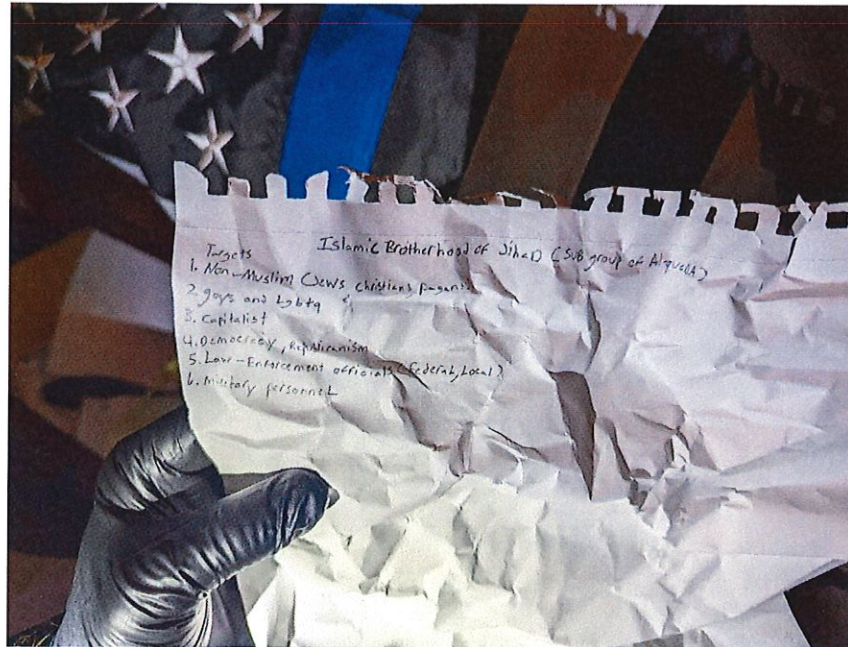 Islamic Brotherhood of Jihad (Sub group of Alqueda)
Targets
1. Non-Muslim (Jews Christians, pagans)
2. gays and Lgbtq
3. Capitalist
4. Democracy, Republicanism
5. Law-Enforcement officials (Federal, Local)
6. Military personnel